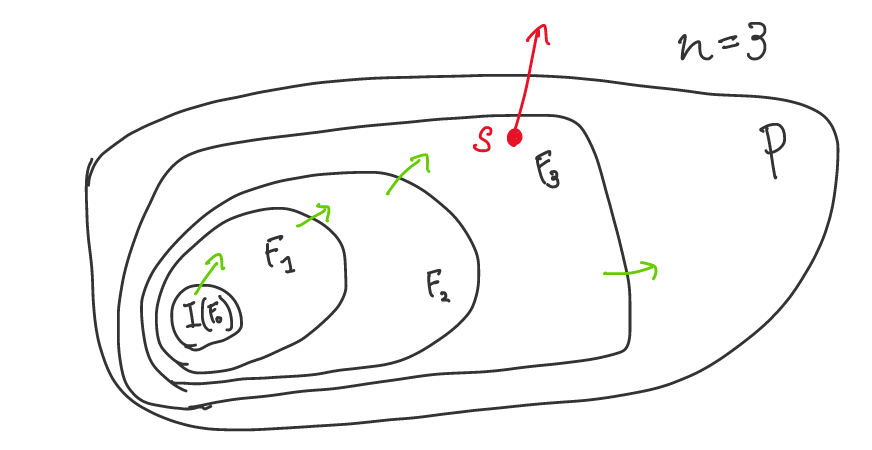 n=3
S
P
F₃
F₁
F₂
I(F₀)